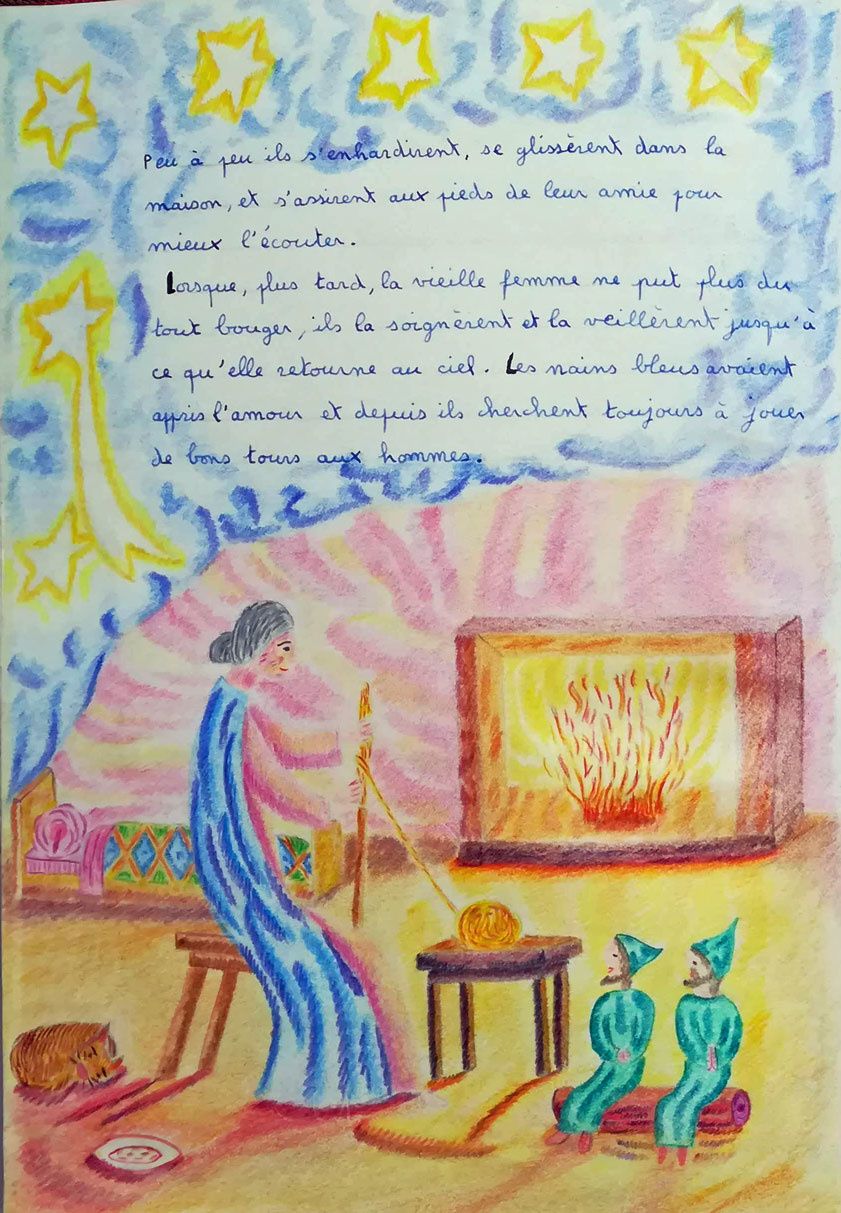 Peu à peu ils s'enhardirent, se glissèrent dans la
maison, et s'assirent aux pieds de leur amie pour
mieux l'écouter.
Lorsque, plus tard, la vieille femme ne put plus du
tout bouger, ils la soignèrent et la veillèrent jusqu'à
ce qu'elle retourne au ciel. Les nains bleus avaient
appris l'amour et depuis ils cherchent toujours à jouer
de bons tours aux hommes.